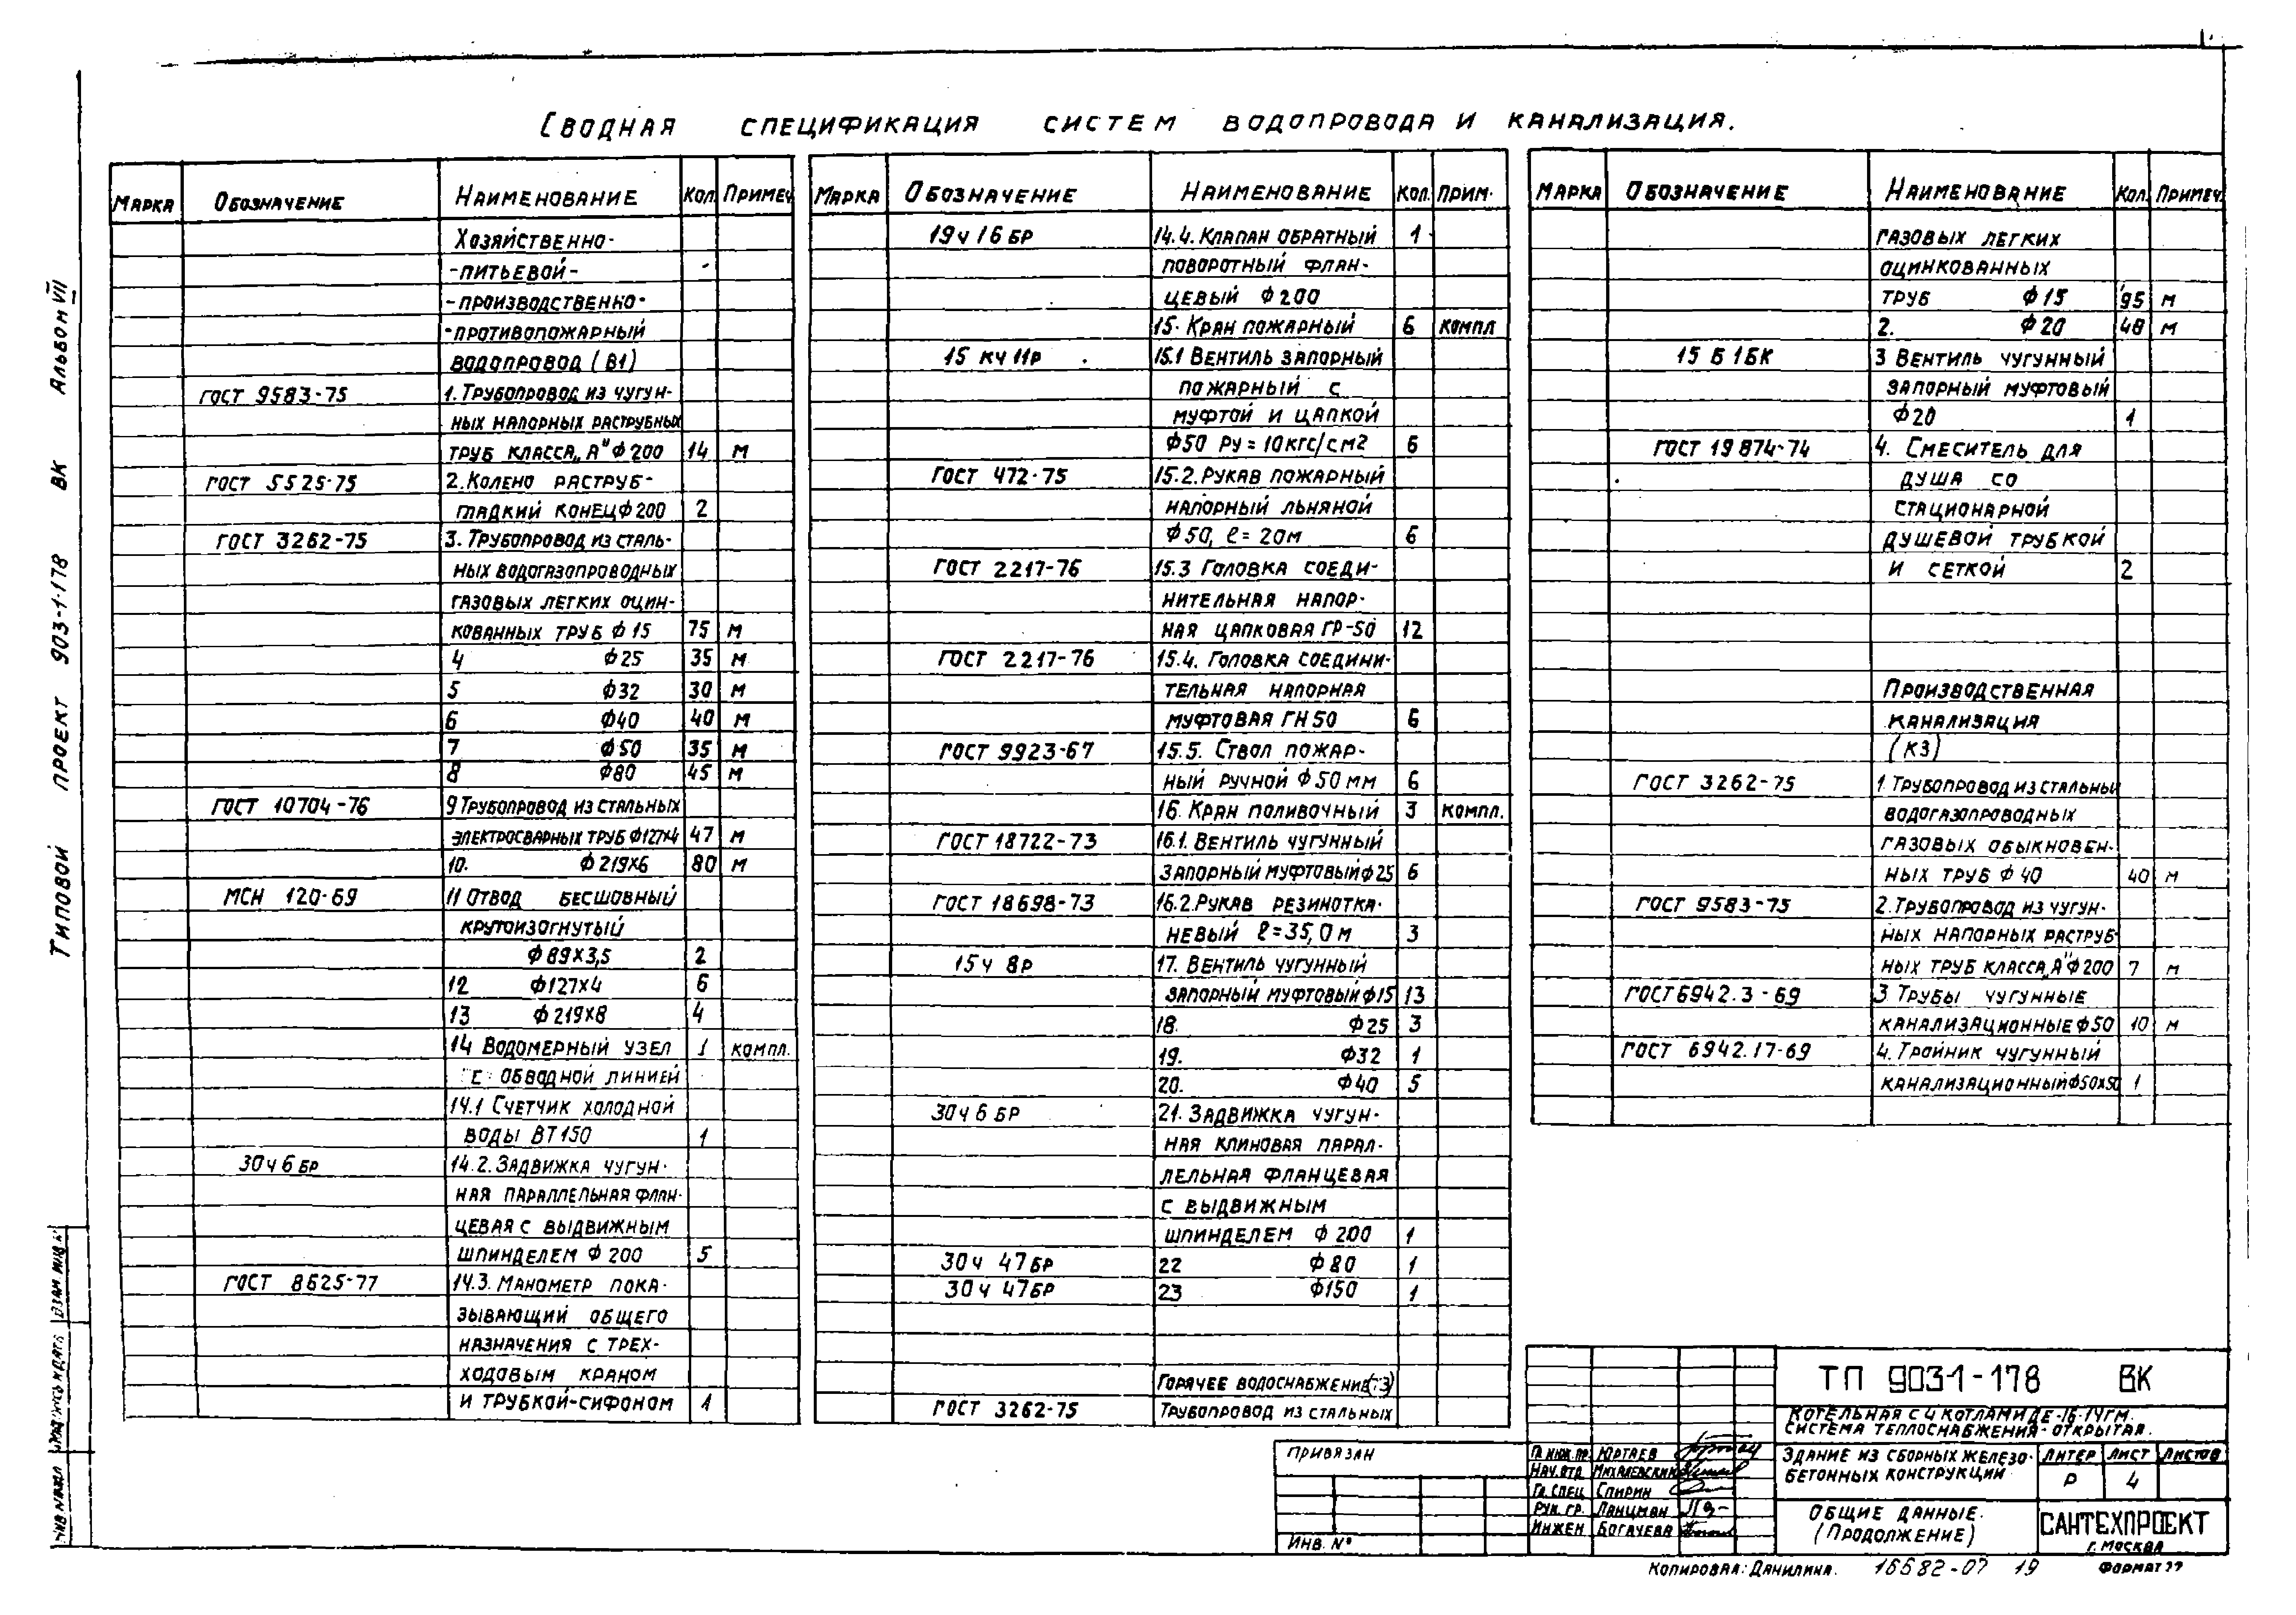 Сводная спецификация систем водопровода и канализация.
Марка Обозначение Наименование Кол. Примеч.
Хозяйственно-
-питьевой-
-производственно-
-противопожарный
водопровод (В1)
ГОСТ 9583-75 1. Трубопровод из чугун-
ных напорных раструбных
труб класса „А" Ф 200 14 м
ГОСТ 5525-75 2. Колено раструб-
гладкий конец Ф 200 2
ГОСТ 3262-75 3. Трубопровод из сталь-
ных водогазопроводных
газовых легких оцин-
кованных труб Ф 15 75 м
4 Ф25 35 м
5 Ф32 30 м
6 Ф40 40 м
7 Ф50 35 м
8 Ф80 45 м
ГОСТ 10704-76 9 Трубопровод из стальных
электросварных труб Ф127х4 47 м
10. Ф 219х6 80 м
МСН 120-69 11 Отвод бесшовный
крутоизогнутый
Ф 89х3,5 2
12 Ф127х4 6
13 Ф 219х8 4
14 Водомерный узел 1 компл.
с обводной линией
14.1 Счетчик холодной
воды ВТ150 1
30ч 6 бр 14.2. Задвижка чугун-
ная параллельная флан-
цевая с выдвижным
шпинделем Ф 200 5
ГОСТ 8625-77 14.3. Манометр пока-
зывающий общего
назначения с трех-
ходовым краном
и трубкой-сифоном 1
Марка Обозначение Наименование Кол. Прим.
19ч 16 бр 14.4. Клапан обратный 1
поворотный флан-
цевый Ф 200
15. Кран пожарный 6 компл
15 кч 11р 15.1 Вентиль запорный
пожарный с
муфтой и цапкой
Ф50 Ру = 10кгс/см2 6
ГОСТ 472-75 15.2. Рукав пожарный
напорный льняной
Ф 50, ℓ = 20м 6
ГОСТ 2217-76 15.3 Головка соеди-
нительная напор-
ная цапковая ГР-50 12
ГОСТ 2217-76 15.4. Головка соедини-
тельная напорная
муфтовая ГН 50 6
ГОСТ 9923-67 15.5. Ствол пожар-
ный ручной Ф 50 мм 6
16. Кран поливочный 3 компл.
ГОСТ 18722-73 16.1. Вентиль чугунный
запорный муфтовый Ф25 6
ГОСТ 18698-73 16.2. Рукав резинотка-
невый ℓ=35,0 м 3
15ч 8р 17. Вентиль чугунный
запорный муфтовый Ф15 13
18. Ф25 3
19. Ф32 1
20. Ф40 5
30ч 6 бр 21. Задвижка чугун-
ная клиновая парал-
лельная фланцевая
с выдвижным
шпинделем Ф 200 1
30ч 47бр 22 Ф 80 1
30ч 47бр 23 Ф150 1
Горячее водоснабжение
ГОСТ 3262-75 Трубопровод из стальных
Марка Обозначение Наименование Кол. Примеч.
газовых легких
оцинкованных
труб Ф 15 95 м
2. Ф 20 48 м
15 Б 1БК 3 Вентиль чугунный
запорный муфтовый
Ф20 1
ГОСТ 19874-74 4. Смеситель для
душа со
стационарной
душевой трубкой
и сеткой 2
Производственная
канализация
(К3)
ГОСТ 3262-75 1. Трубопровод из стальных
водогазопроводных
газовых обыкновен-
ных труб Ф 40 40 м
ГОСТ 9583-75 2. Трубопровод из чугун-
ных напорных раструб-
ных труб класса „А" Ф 200 7 м
ГОСТ 6942.3-69 3 Трубы чугунные
канализационные Ф50 10 м
ГОСТ 6942.17-69 4. Тройник чугунный
канализационный Ф50х50 1
Типовой проект 903-1-178 ВК Альбом VII
Привязан
Инв. №
Гл. инж. пр. Юртаев
Нач. отд. Михалевский
Гл. спец. Спирин
Рук. гр. Ланцман
Инжен. Богачева
ТП 903-1-178 ВК
Котельная с 4 котлами ДЕ-16-14ГМ.
Система теплоснабжения - открытая.
Здание из сборных железо-
бетонных конструкций
Литер Лист Листов
Р 4
Общие данные.
(Продолжение)
САНТЕХПРОЕКТ
г. Москва
Копировал: Данилина. 16682-07 19 Формат 22